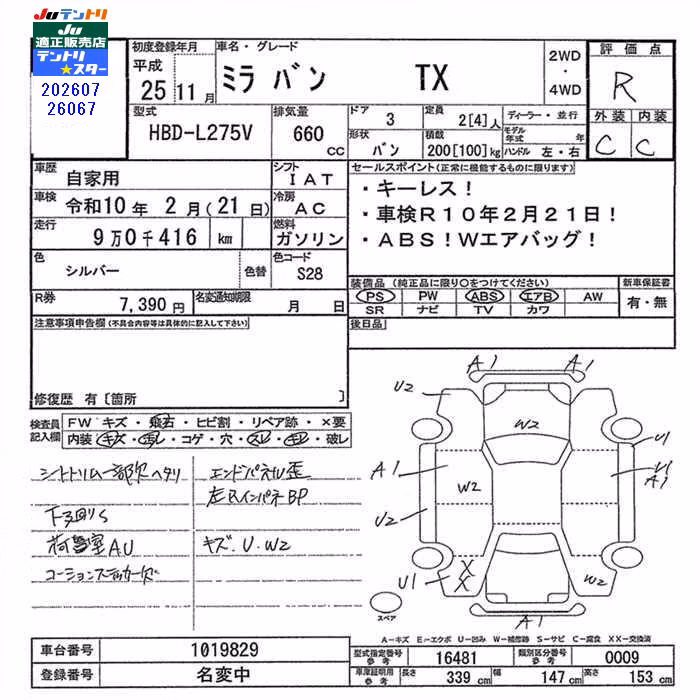 JUテントリ
JU
適正販売店
テントリ
★スター
202607
26067
初度登録年月
平成
25 11月
車名・グレード
ミラ バン TX
2WD
・
4WD
評価点
R
外装 内装
C C
型式
HBD-L275V
排気量
660
CC
ドア
3
形状
バン
定員
2[4]人
積載
200[100]kg
ディーラー・並行
モデル年式 年
ハンドル 左・右
車歴
自家用
シフト
IAT
車検
令和10年 2月(21日)
冷房
AC
走行
9万0千416 km
燃料
ガソリン
色
シルバー
色替
色コード
S28
R券
7,390円
名変通知期限
月 日
セールスポイント(正常に機能するものに限ります)
・キーレス!
・車検R10年2月21日!
・ABS!Wエアバッグ!
装備品(純正品に限り○をつけてください)
PS PW ABS エアB AW
SR ナビ TV カワ
新車保証書
有・無
後日品
注意事項申告欄(不具合内容等は具体的に記入して下さい)
修復歴 有〔箇所 〕
検査員
記入欄
FW キズ・飛石・ヒビ割・リペア跡・×要
内装 キズ・ヨゴレ・コゲ・穴・スレ・キレ・破レ
シートトリム一部欠ヘタリ
下廻りS
荷室AU
コーションステッカー欠
エンドパネル歪
左RインパネBP
キズ.U.W2
A1 A1
U2
W2
U1
A1
W2
U1
A1
U2
X
X
U1
W2
A1
スペア
A-キズ E-エクボ U-凹み W-補修跡 S-サビ C-腐食 XX-交換済
車台番号
1019829
登録番号
名変中
型式指定番号
参考
16481
類別区分番号
参考
0009
車庫証明用
参考
長さ 339 cm
幅 147 cm
高さ 153 cm